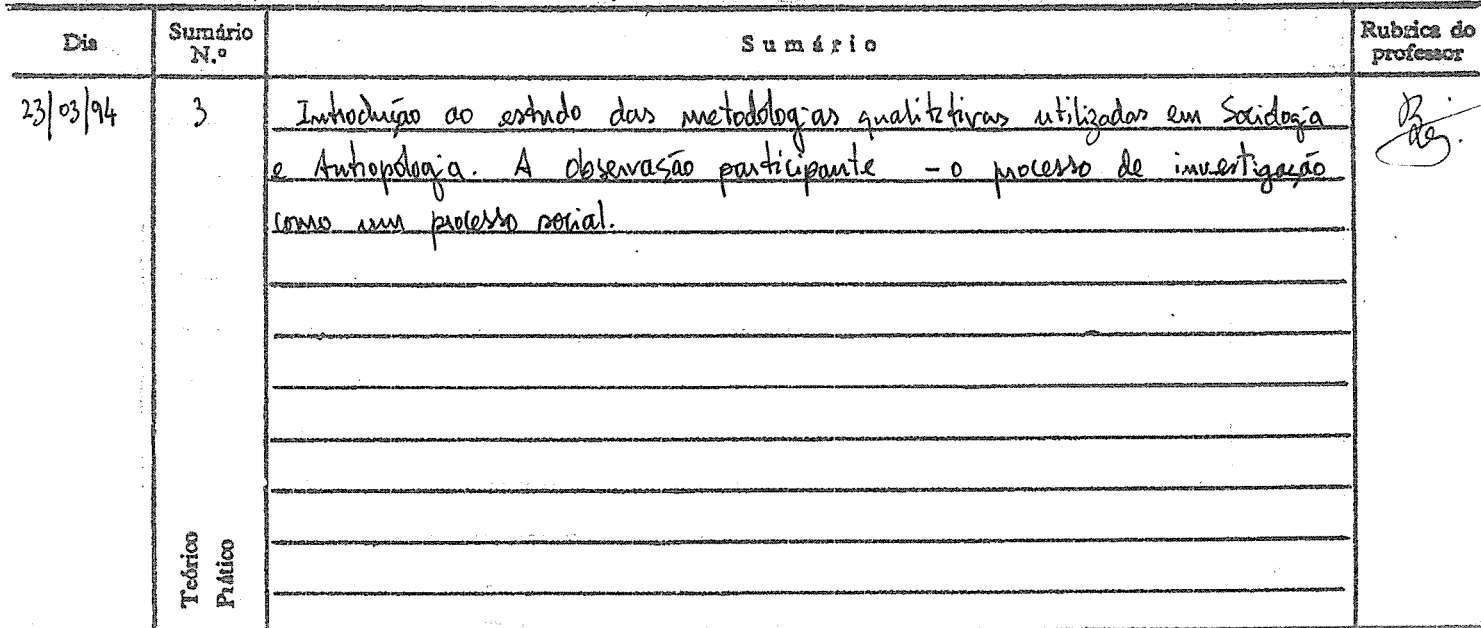 Dia Sumário N.º Sumário Rubrica do professor
23/03/94 3 Introdução ao estudo das metodologias qualitativas utilizadas em Sociologia
e Antropologia. A observasão participante - o processo de investigação
como um processo social.
Teórico
Prático